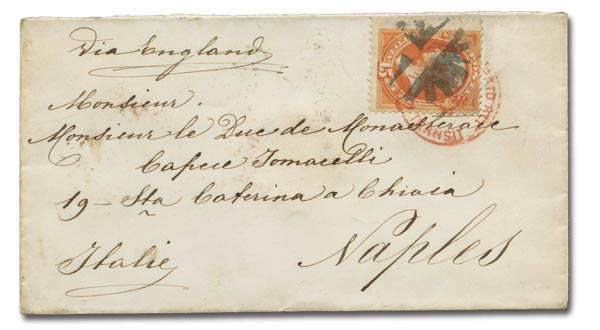 Via England
15
PAID
TRANSIT
Monsieur.
Monsieur le Duc de Monasterace
Capece Tomacelli
19 - Sta Caterina a Chiaia
Naples
Italie